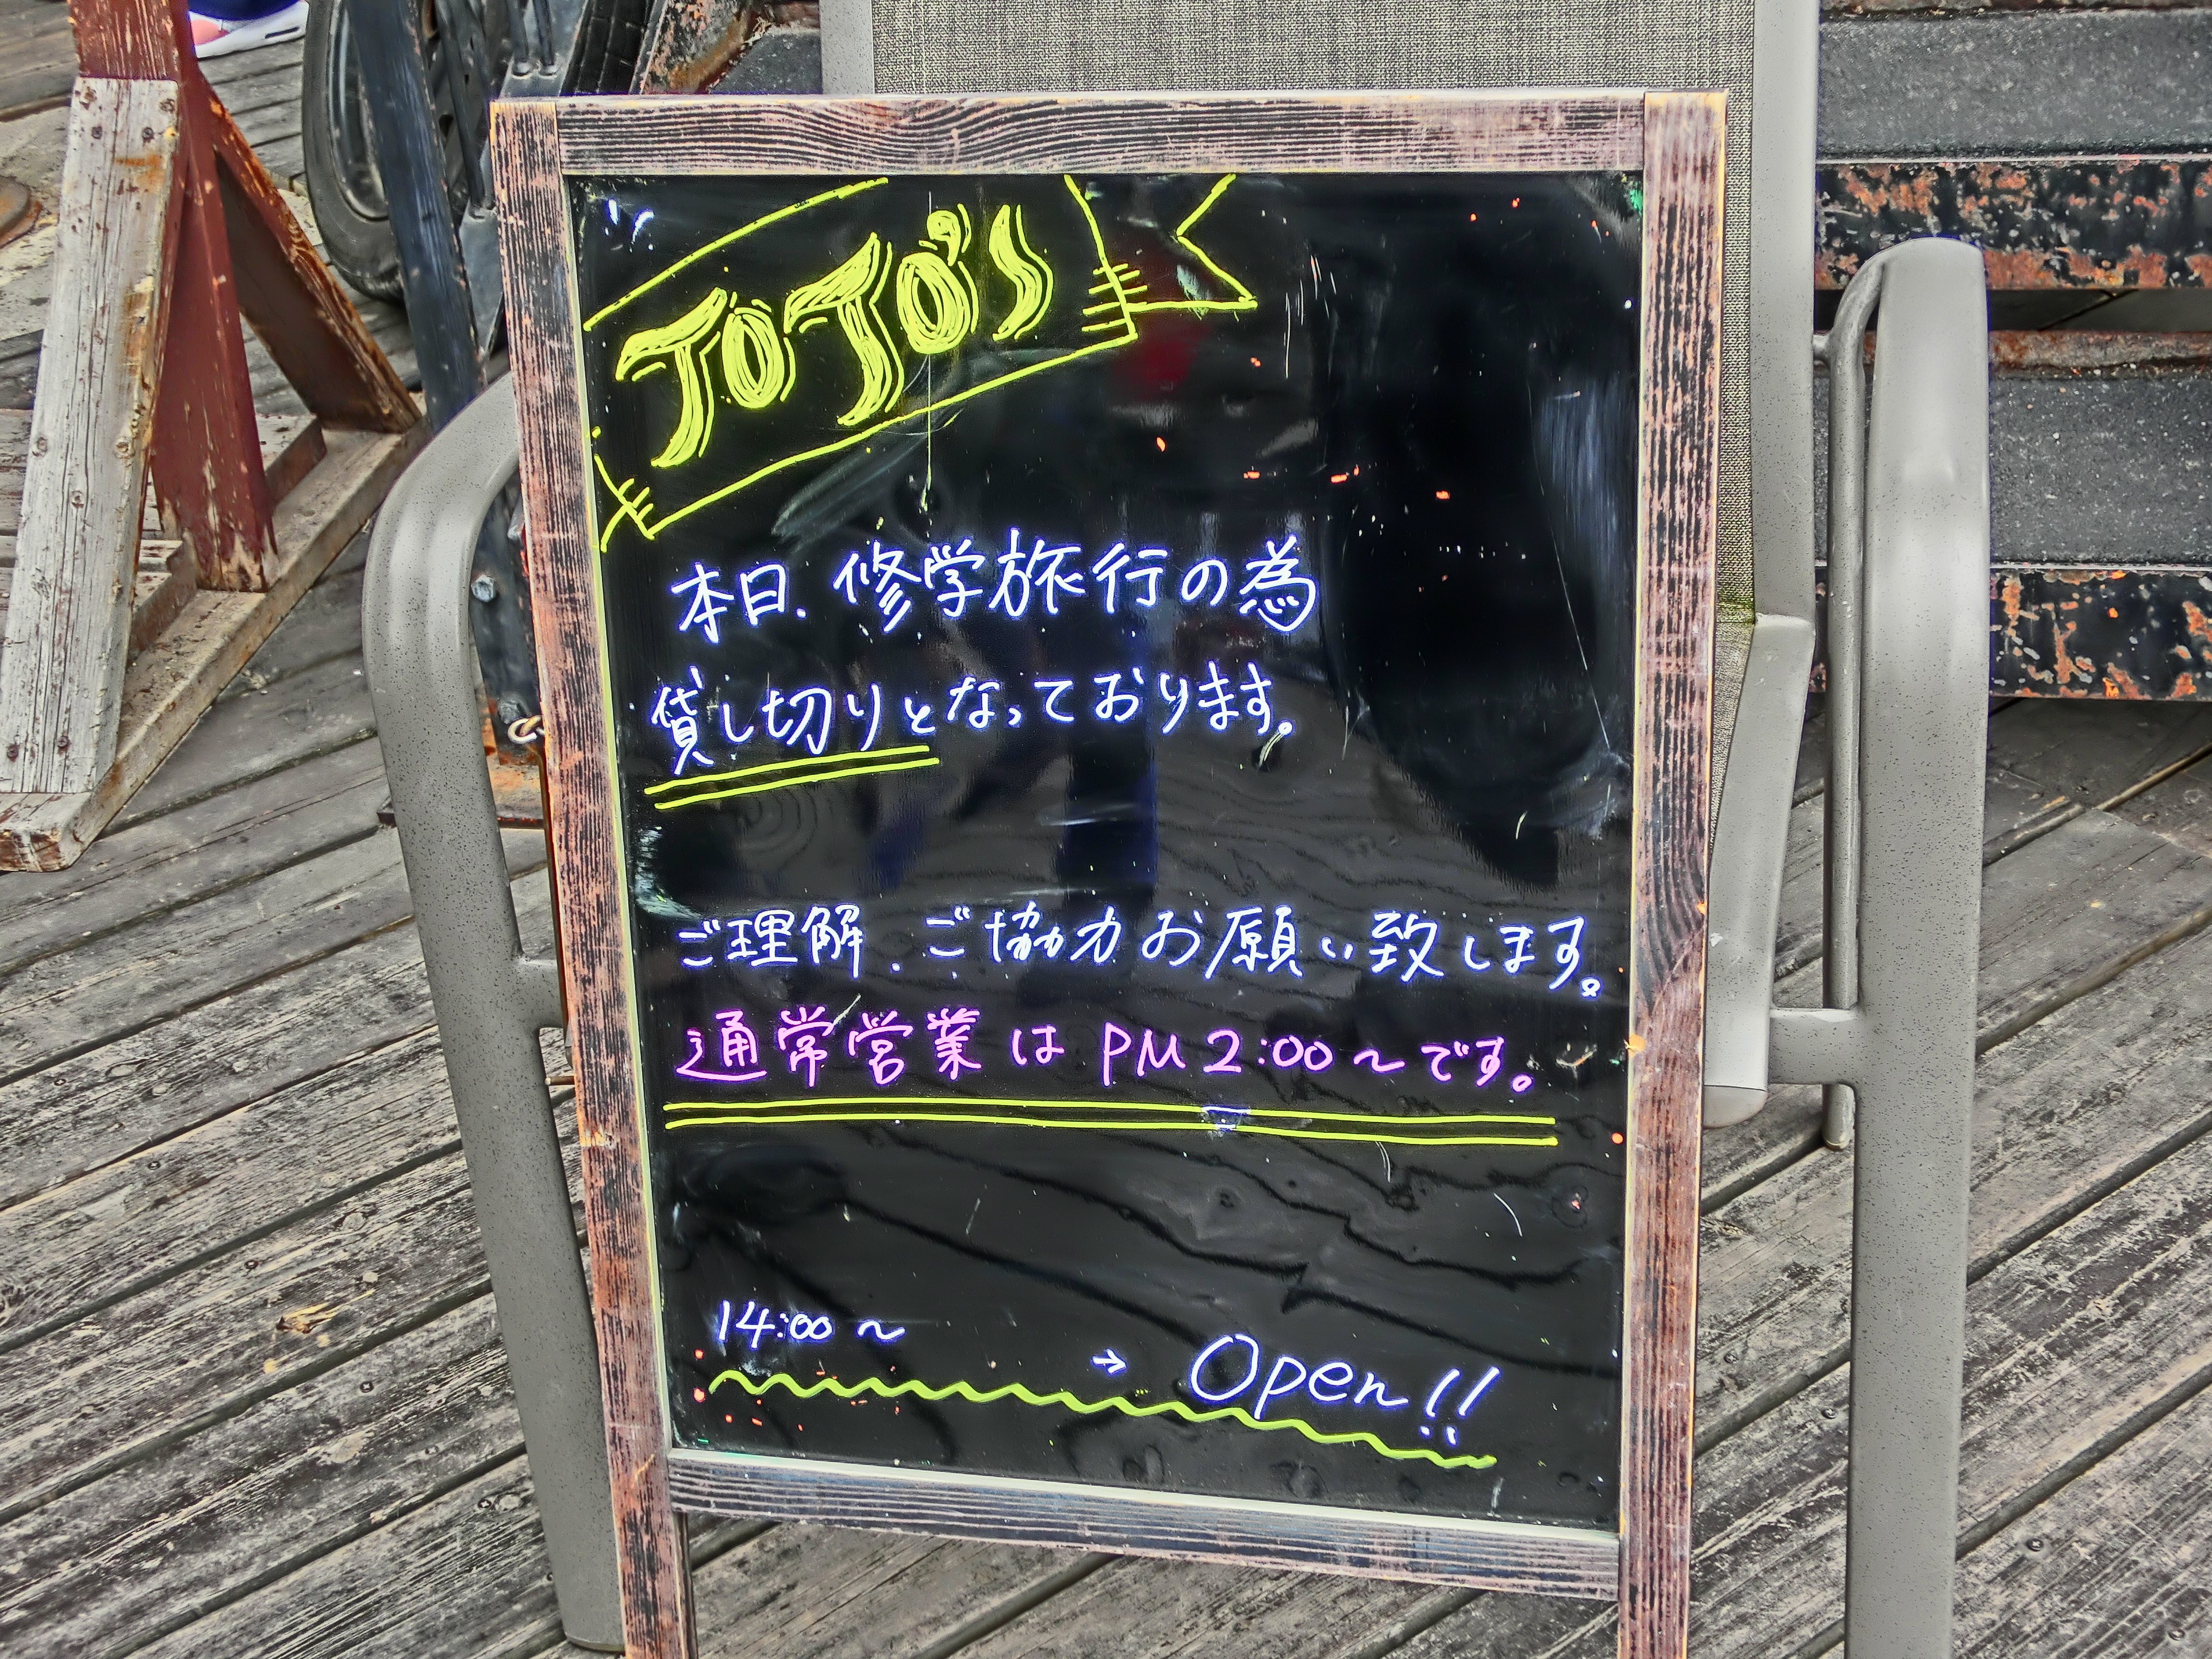 JOJO's
本日、修学旅行の為
貸し切りとなっております。
ご理解、ご協力お願い致します。
通常営業は PM 2:00〜です。
14:00 〜
→ Open!!